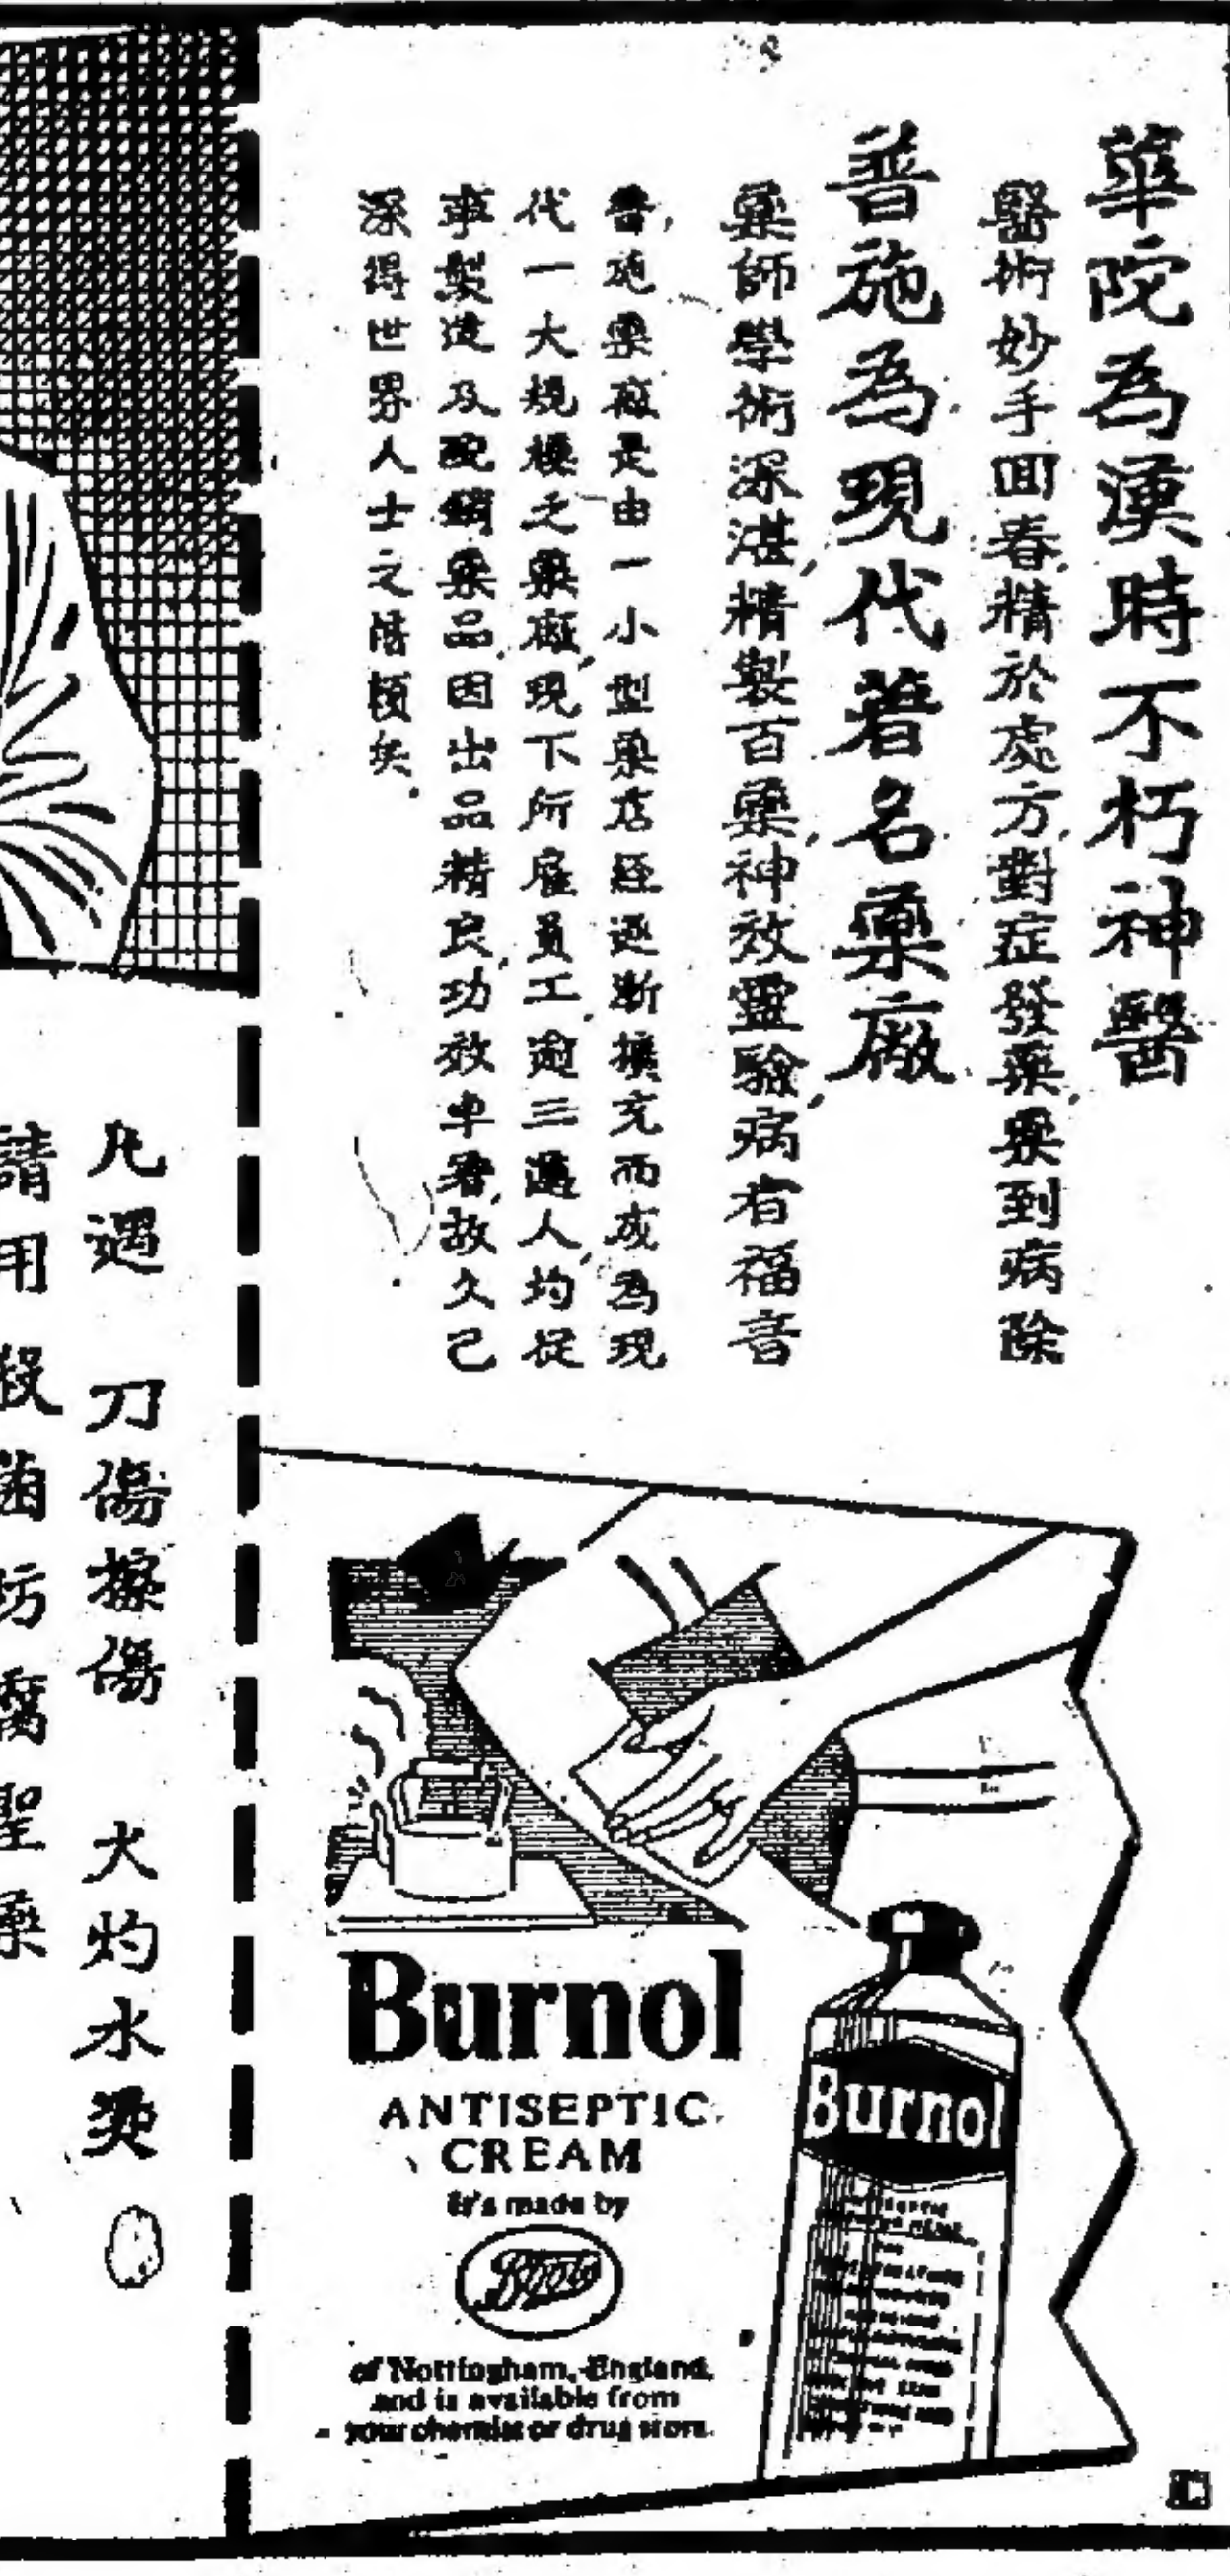 華陀為漢時不朽神醫
醫術妙手回春精於處方對症發藥藥到病除
普施為現代著名藥廠
藥師學術深湛精製百藥神效靈驗病者福音
普施藥廠是由一小型藥店經逐漸擴充而成為現
代一大規模之藥廠現下所雇員工逾三邁人均從
事製造及配銷藥品因出品精良功效卓著故久已
深得世界人士之信頼矣
凡遇 刀傷擦傷 火灼水燙
請用 殺菌防腐聖藥
Burnol
ANTISEPTIC
CREAM
It's made by
Boots
of Nottingham, England,
and is available from
your chemist or drug store.
Burnol